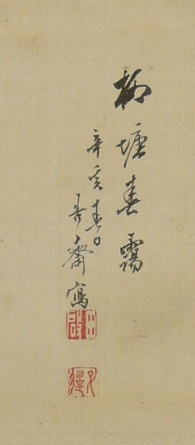 柳塘春靄
辛亥春日
吾齋寫